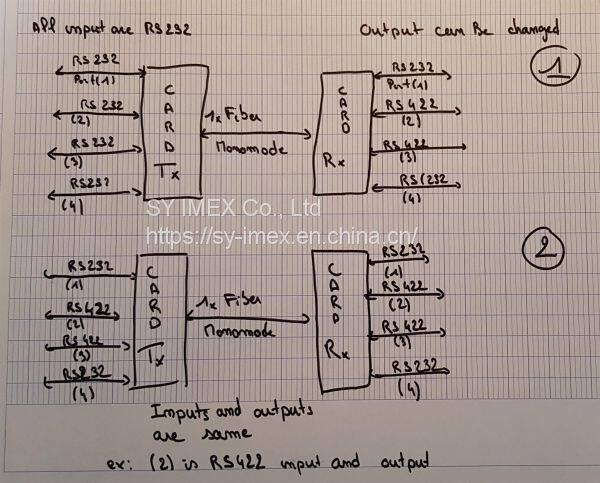 All input are RS232
Output can Be changed
1
RS232
Port(1)
RS232
(2)
RS232
(3)
RS232
(4)
CARD
Tx
1x Fiber
Monomode
CARD
Rx
RS232
Port(1)
RS422
(2)
RS422
(3)
RS232
(4)
SY IMEX Co., Ltd
https://sy-imex.en.china.cn/
2
RS232
(1)
RS422
(2)
RS422
(3)
RS232
(4)
CARD
Tx
1x Fiber
Monomode
CARD
Rx
RS232
(1)
RS422
(2)
RS422
(3)
RS232
(4)
Imputs and outputs
are same
ex: (2) is RS422 input and output